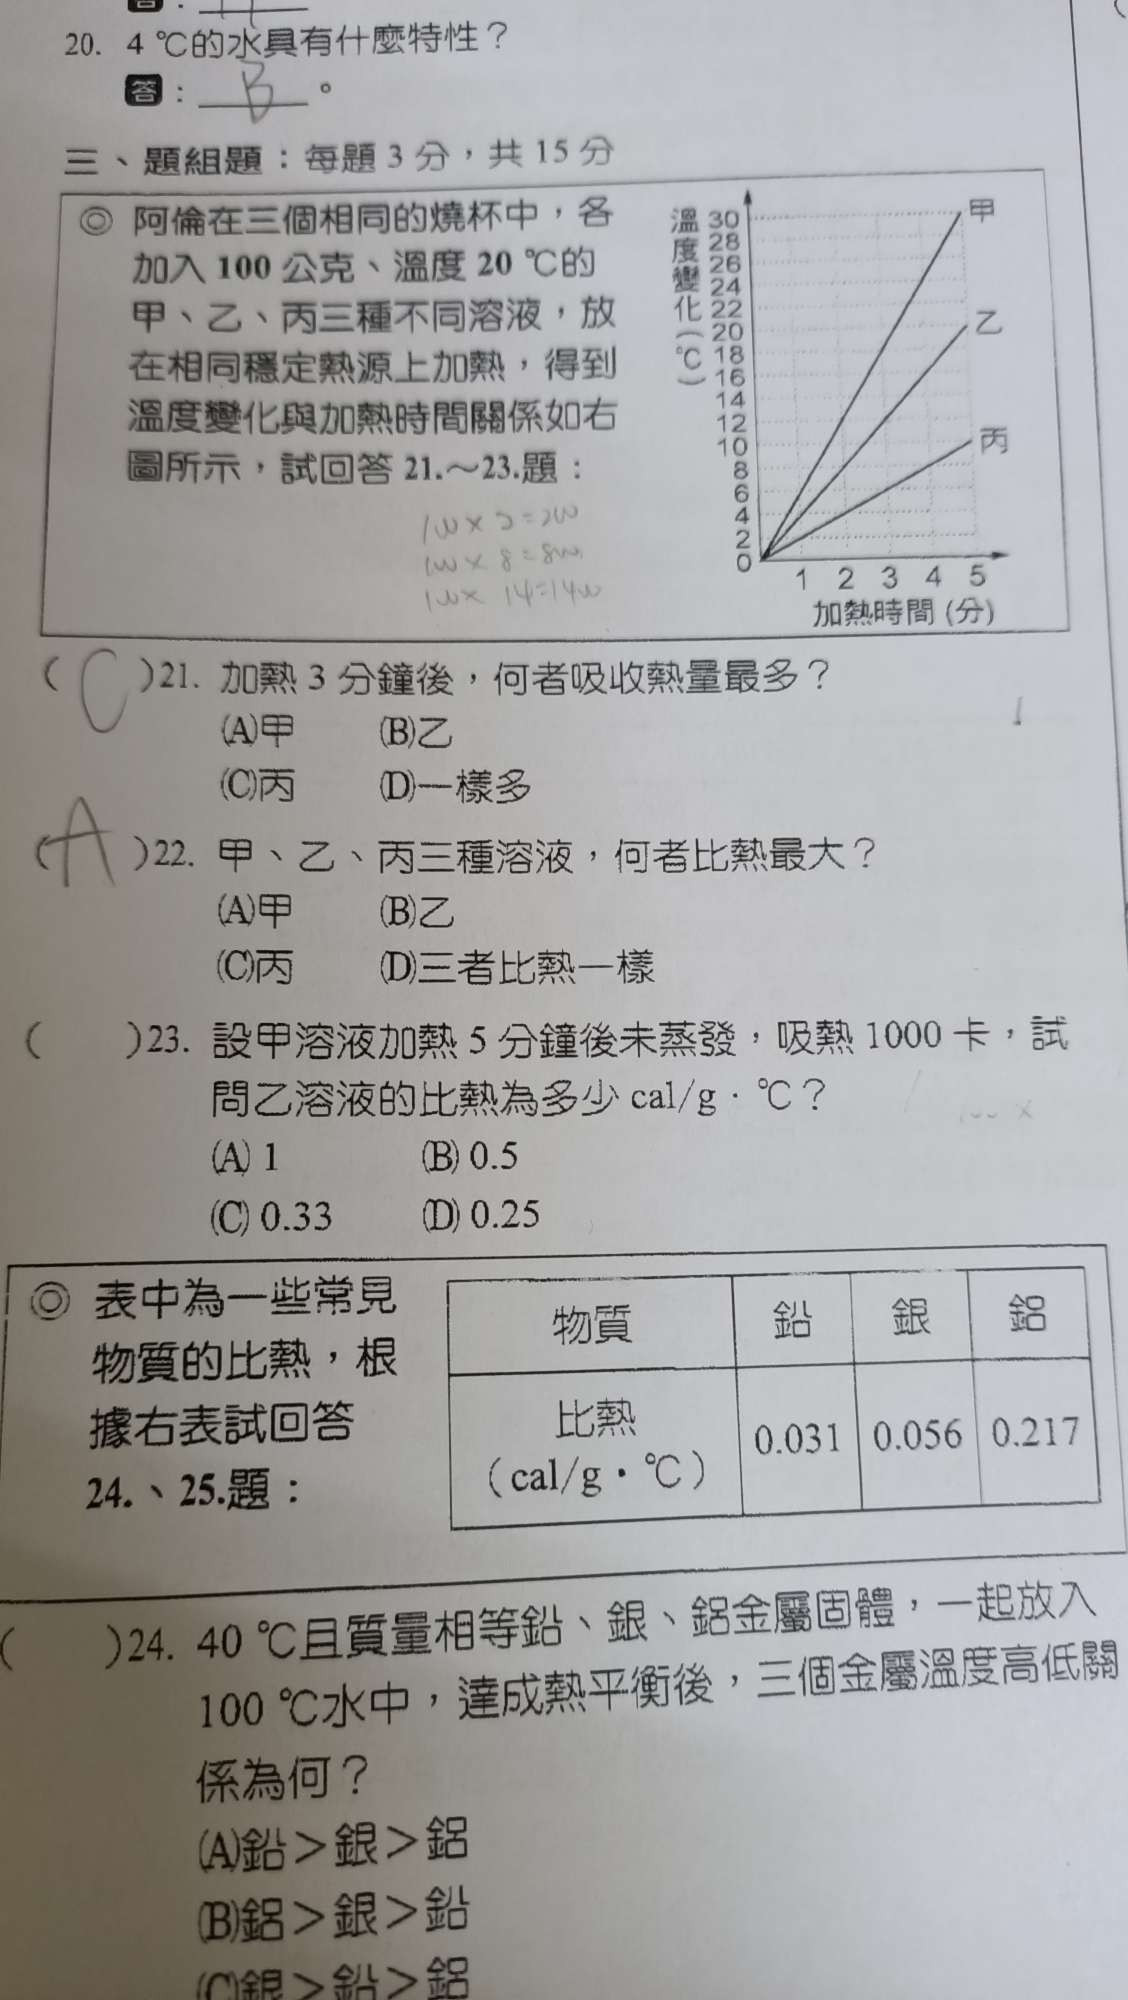 20. 4 ℃的水具有什麼特性？
答：B。
三、題組題：每題 3 分，共 15 分
◎ 阿倫在三個相同的燒杯中，各
加入 100 公克、溫度 20 ℃的
甲、乙、丙三種不同溶液，放
在相同穩定熱源上加熱，得到
溫度變化與加熱時間關係如右
圖所示，試回答 21.～23.題：
溫度變化(℃)
30
28
26
24
22
20
18
16
14
12
10
8
6
4
2
0
甲
乙
丙
1 2 3 4 5
加熱時間 (分)
( C )21. 加熱 3 分鐘後，何者吸收熱量最多？
(A)甲 (B)乙
(C)丙 (D)一樣多
( A )22. 甲、乙、丙三種溶液，何者比熱最大？
(A)甲 (B)乙
(C)丙 (D)三者比熱一樣
( )23. 設甲溶液加熱 5 分鐘後未蒸發，吸熱 1000 卡，試
問乙溶液的比熱為多少 cal/g · ℃？
(A) 1 (B) 0.5
(C) 0.33 (D) 0.25
◎ 表中為一些常見
物質的比熱，根
據右表試回答
24.、25.題：
物質 鉛 銀 鋁
比熱
(cal/g·℃) 0.031 0.056 0.217
( )24. 40 ℃且質量相等鉛、銀、鋁金屬固體，一起放入
100 ℃水中，達成熱平衡後，三個金屬溫度高低關
係為何？
(A)鉛＞銀＞鋁
(B)鋁＞銀＞鉛
(C)銀＞鉛＞鋁